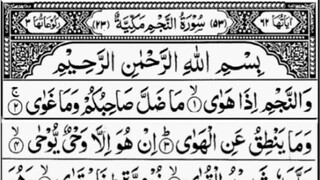 اٰیَاتُهَا ٦٢ (٥٣) سُوْرَةُ النَّجْمِ مَكِّیَّةٌ (٢٣) رُكُوْعَاتُهَا ٣
بِسْمِ اللهِ الرَّحْمٰنِ الرَّحِیْمِ
وَالنَّجْمِ اِذَا هَوٰی ۙ﴿١﴾ مَا ضَلَّ صَاحِبُكُمْ وَمَا غَوٰی ۚ﴿٢﴾
وَمَا یَنْطِقُ عَنِ الْهَوٰی ؕ﴿٣﴾ اِنْ هُوَ اِلَّا وَحْیٌ یُّوْحٰی ۙ﴿٤﴾